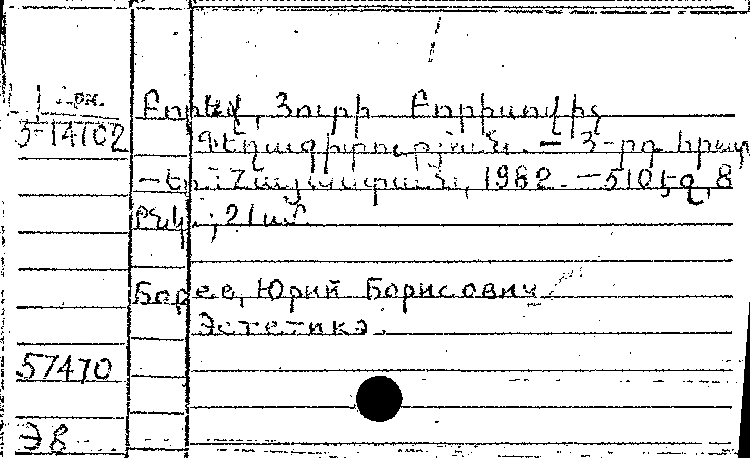 Բորև, Յուրի Բորիսովիչ
3-14702
Գեղագիտություն. — 3-րդ հրատ
— Եր.: Հայաստան, 1982. — 510 էջ, 8
թերթ.; 21 սմ
Борев, Юрий Борисович
Эстетика.
57470
Э8